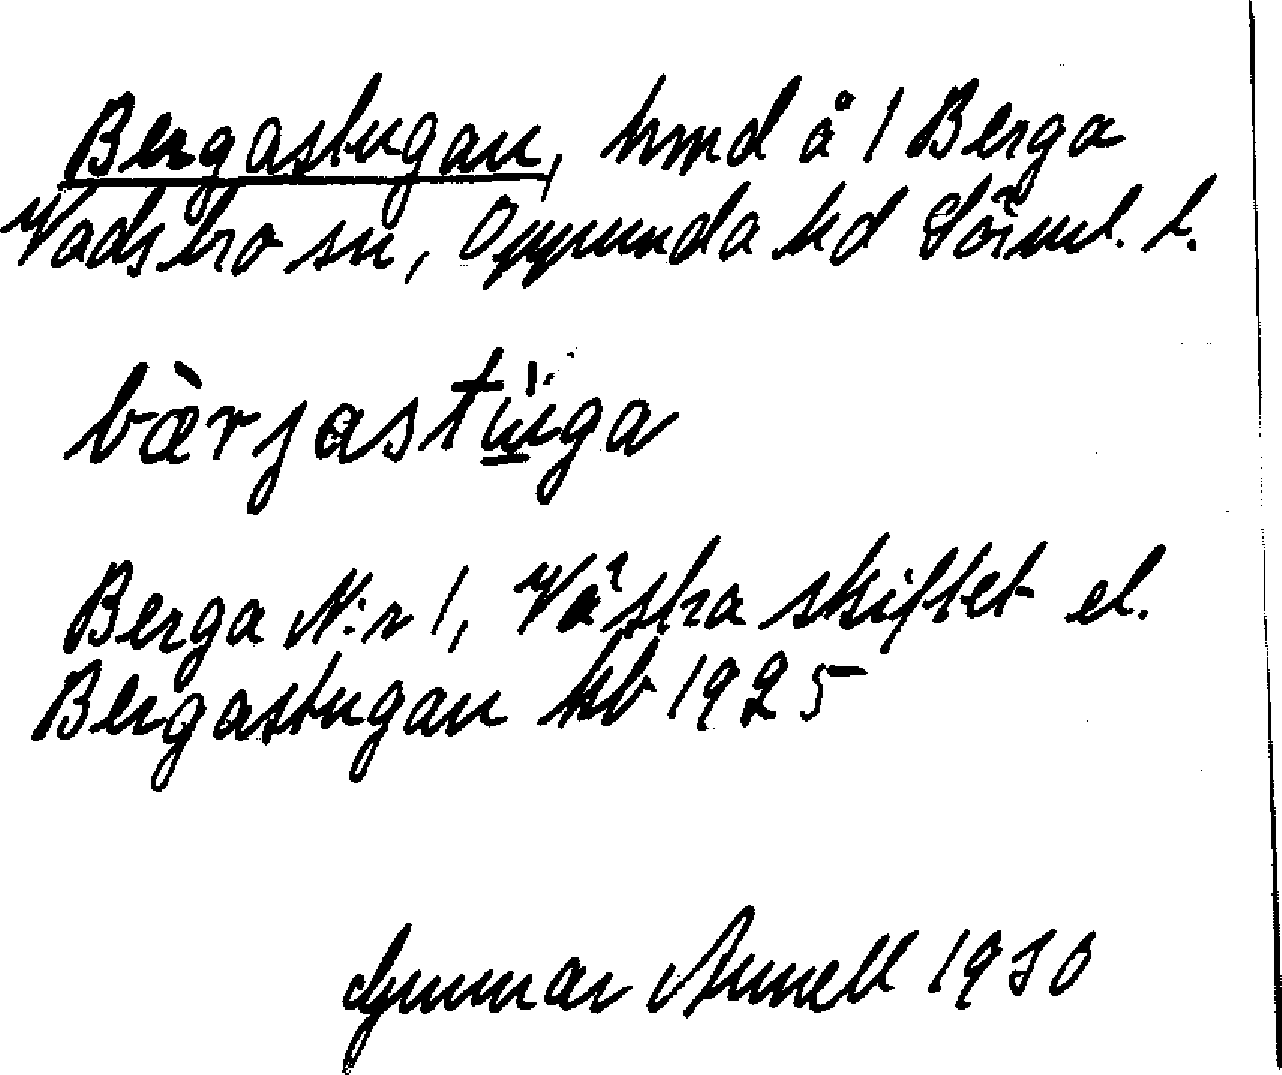 Bergastugan, hmd å 1 Berga
Vadsbro sn, Oppunda hd Sörml. l.
bærjastuga
Berga N:r 1, Västra skiftet el.
Bergastugan kb 1925
Gunnar 1930